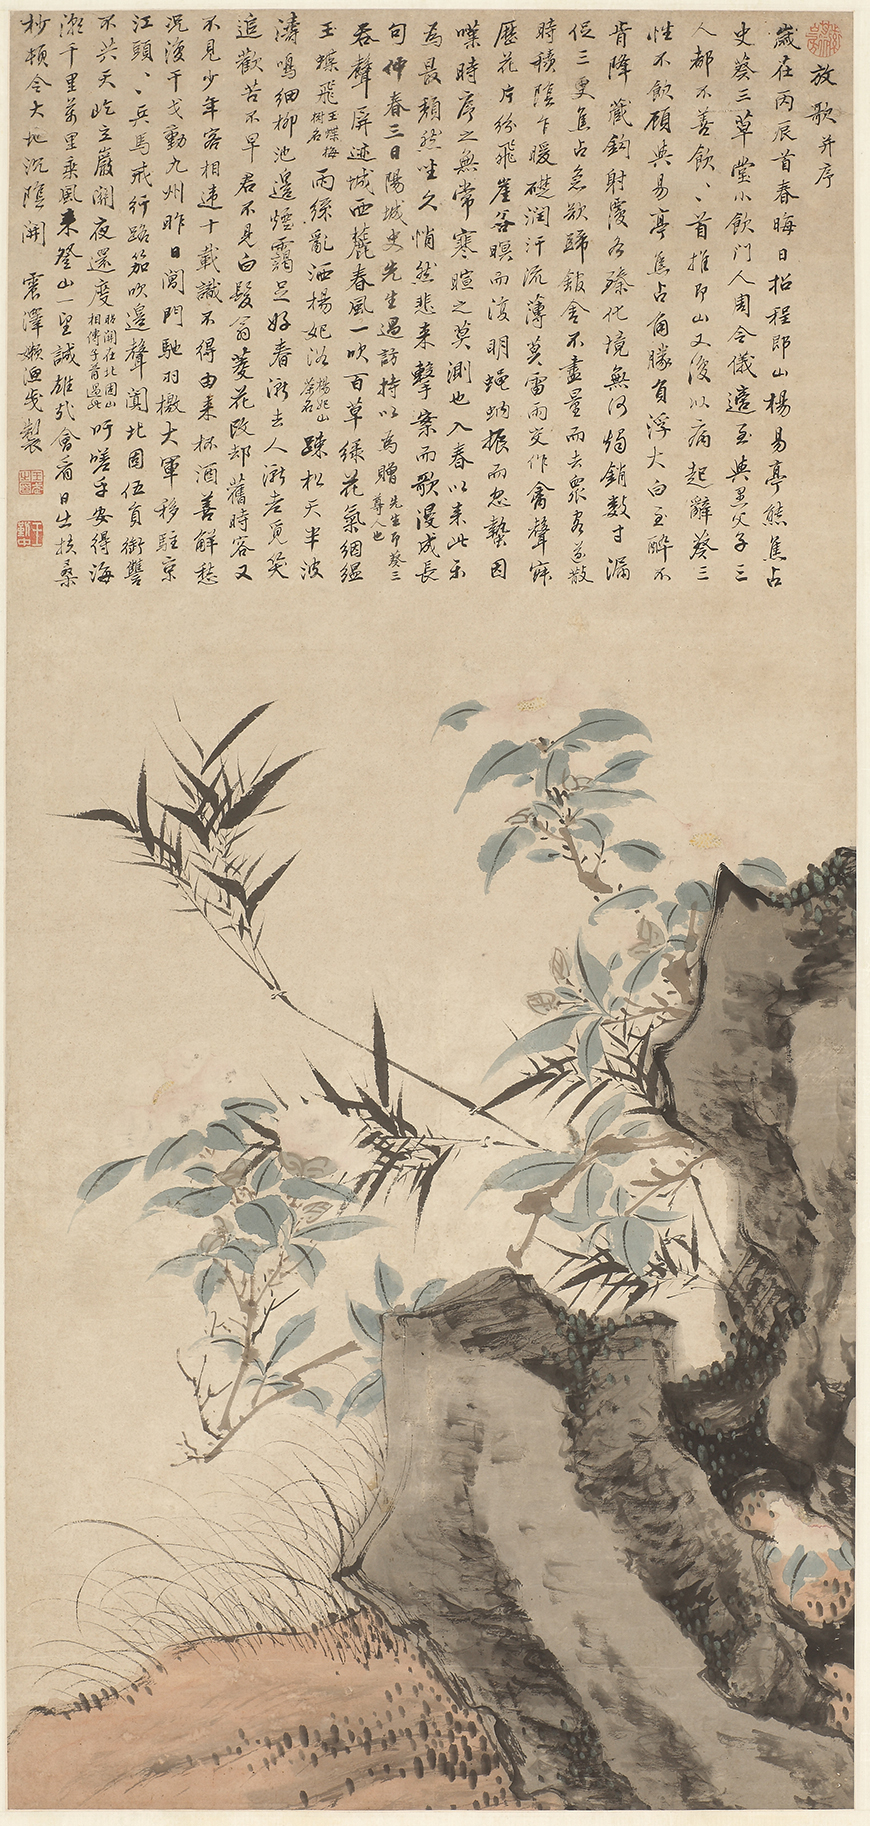 放歌并序
歲在丙辰首春晦日招程郎山楊易亭熊焦占
史葵三草堂小飲門人周令儀適至與君父子三
人都不善飲、首推郎山又復以病起辭葵三
性不飲顧與易亭焦占角勝負浮大白玉醉不
肯降藏鈎射覆各臻化境無何燭銷數寸漏
促三更焦占急欲歸飯舍不盡量而去衆客遂散
時積陰乍暖礎潤汗流薄莫雷雨交作禽聲寂
歷花片紛飛崖谷暝而復明蠅蚋振而忽蟄因
嘆時序之無常寒暄之莫測也入春以來此樂
為最頹然坐久悄然悲來擊案而歌漫成長
句仲春三日陽城史先生過訪持以為贈先生即葵三尊人也
吞聲屏迹城西麓春風一吹百草綠花氣絪縕
玉蝶飛玉蝶梅樹名雨絲亂洒楊妃浴楊妃山茶名踈松天半波
濤鳴細柳池邊煙靄足好春漸去人漸老覓笑
追歡苦不早君不見白髮翁菱花改却舊時容又
不見少年客相違十載識不得由來杯酒善解愁
沉復干戈動九州昨日閶門馳羽檄大軍移駐京
江頭、、兵馬戒行路笳吹邊聲滇北固伍員銜讐
不共天屹立巖關夜還度昭關在北固山相傳子胥過此吁嗟乎安得海
漸千里萬里乘風來登山一望誠雄哉會看日出扶桑
杪頓令大地沉陰開 震澤嬾漁戈製